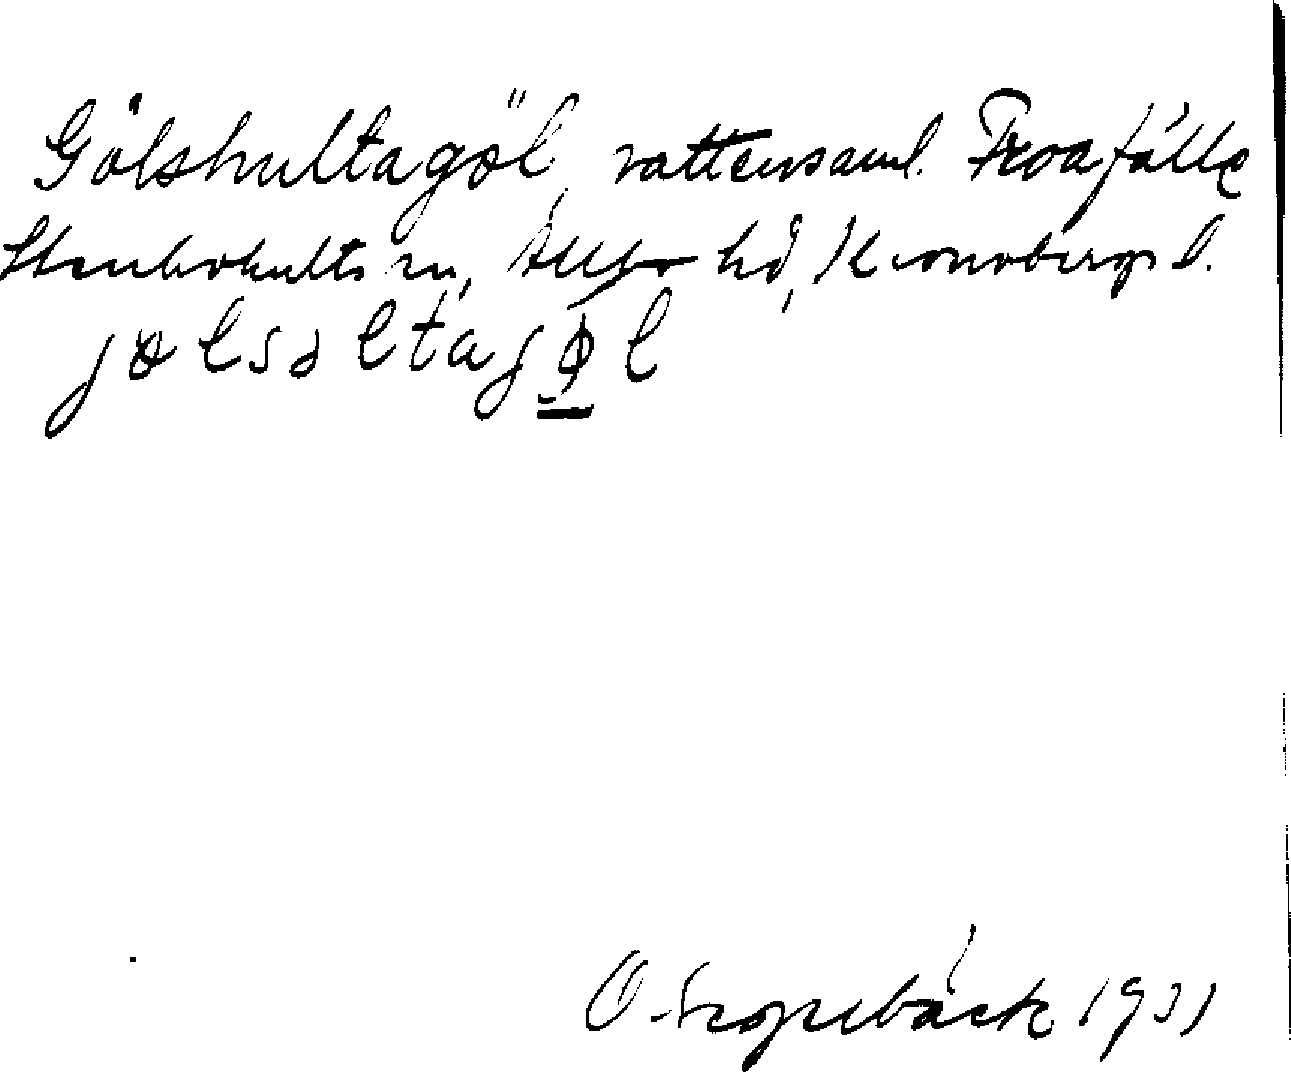 Gölshultagöl, vattensaml. Troafälle
Stenbrohults sn, Allbo hd, Kronobergs l.
jølsəltagø̱l
O. Areskog 1931